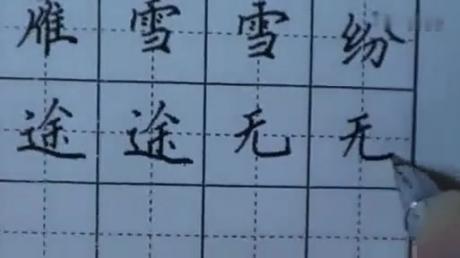 雁雪雪纷
途途无无